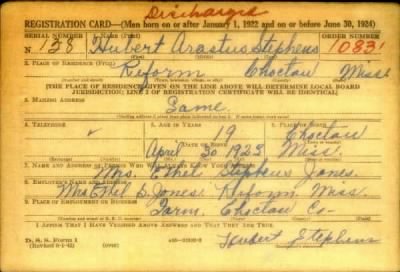 Discharged
REGISTRATION CARD—(Men born on or after January 1, 1922 and on or before June 30, 1924)
SERIAL NUMBER 1. NAME (Print) ORDER NUMBER
N 138 Hubert Arastus Stephens 10831
(First) (Middle) (Last)
2. PLACE OF RESIDENCE (Print)
Reform Choctaw Miss
[THE PLACE OF RESIDENCE GIVEN ON THE LINE ABOVE WILL DETERMINE LOCAL BOARD
JURISDICTION; LINE 2 OF REGISTRATION CERTIFICATE WILL BE IDENTICAL]
3. MAILING ADDRESS
Same
4. TELEPHONE 5. AGE IN YEARS 6. PLACE OF BIRTH
19 Choctaw
DATE OF BIRTH
April 30 1923 Miss.
7. NAME AND ADDRESS OF PERSON WHO WILL ALWAYS KNOW YOUR ADDRESS
Mrs. Ethel Stephens Jones
8. EMPLOYER'S NAME AND ADDRESS
Mrs Ethel S Jones Reform, Miss
9. PLACE OF EMPLOYMENT OR BUSINESS
Farm. Choctaw Co
I AFFIRM THAT I HAVE VERIFIED ABOVE ANSWERS AND THAT THEY ARE TRUE.
D. S. S. Form 1
(Revised 6-1-42) (over) Hubert Stephens